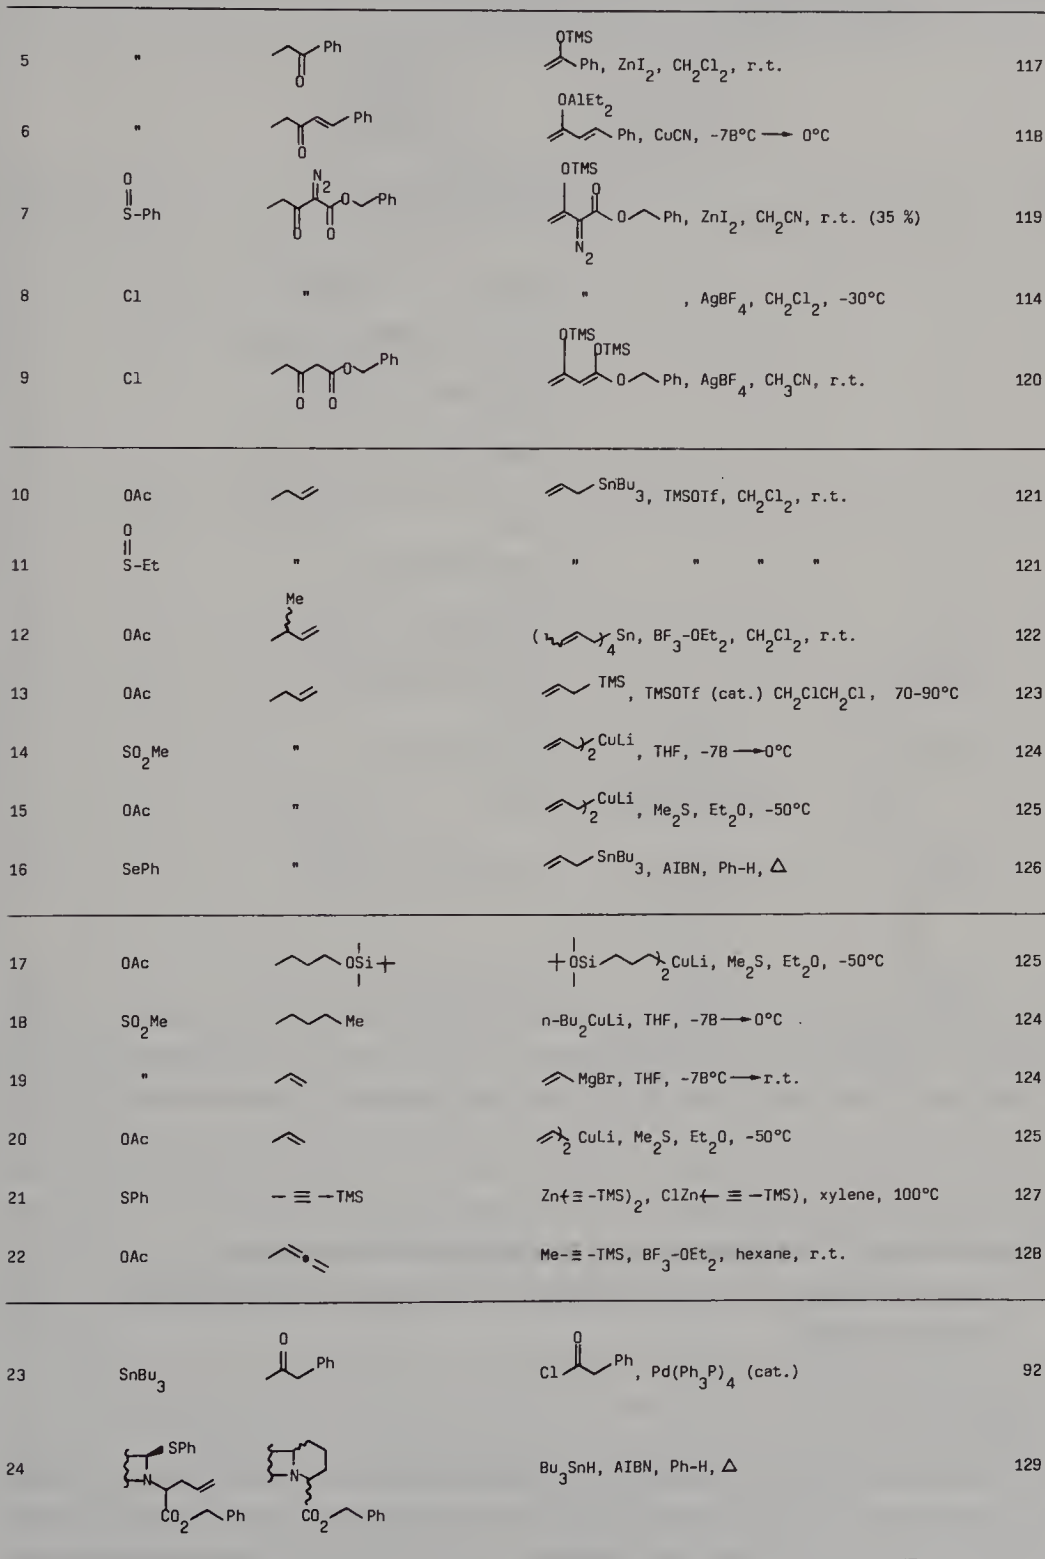 OTMS
5 " Ph O Ph, ZnI2, CH2Cl2, r.t. 117
OAlEt2
6 " Ph O Ph, CuCN, -78°C → 0°C 118
O N2 OTMS O
7 S-Ph O Ph O O O Ph, ZnI2, CH2CN, r.t. (35 %) 119
N2
8 Cl " " , AgBF4, CH2Cl2, -30°C 114
OTMS OTMS
9 Cl O Ph O O O Ph, AgBF4, CH3CN, r.t. 120
10 OAc SnBu3, TMSOTf, CH2Cl2, r.t. 121
O
11 S-Et " " " " " 121
Me
12 OAc ( )4Sn, BF3-OEt2, CH2Cl2, r.t. 122
13 OAc TMS, TMSOTf (cat.) CH2ClCH2Cl, 70-90°C 123
14 SO2Me " )2CuLi, THF, -78 → 0°C 124
15 OAc " )2CuLi, Me2S, Et2O, -50°C 125
16 SePh " SnBu3, AIBN, Ph-H, Δ 126
17 OAc OSi OSi )2CuLi, Me2S, Et2O, -50°C 125
18 SO2Me Me n-Bu2CuLi, THF, -78 → 0°C 124
19 " MgBr, THF, -78°C → r.t. 124
20 OAc )2 CuLi, Me2S, Et2O, -50°C 125
21 SPh - ≡ -TMS Zn(-≡-TMS)2, ClZn(- ≡ -TMS), xylene, 100°C 127
22 OAc Me-≡-TMS, BF3-OEt2, hexane, r.t. 128
O O
23 SnBu3 Ph Cl Ph, Pd(Ph3P)4 (cat.) 92
SPh
24 N N Bu3SnH, AIBN, Ph-H, Δ 129
CO2 Ph CO2 Ph